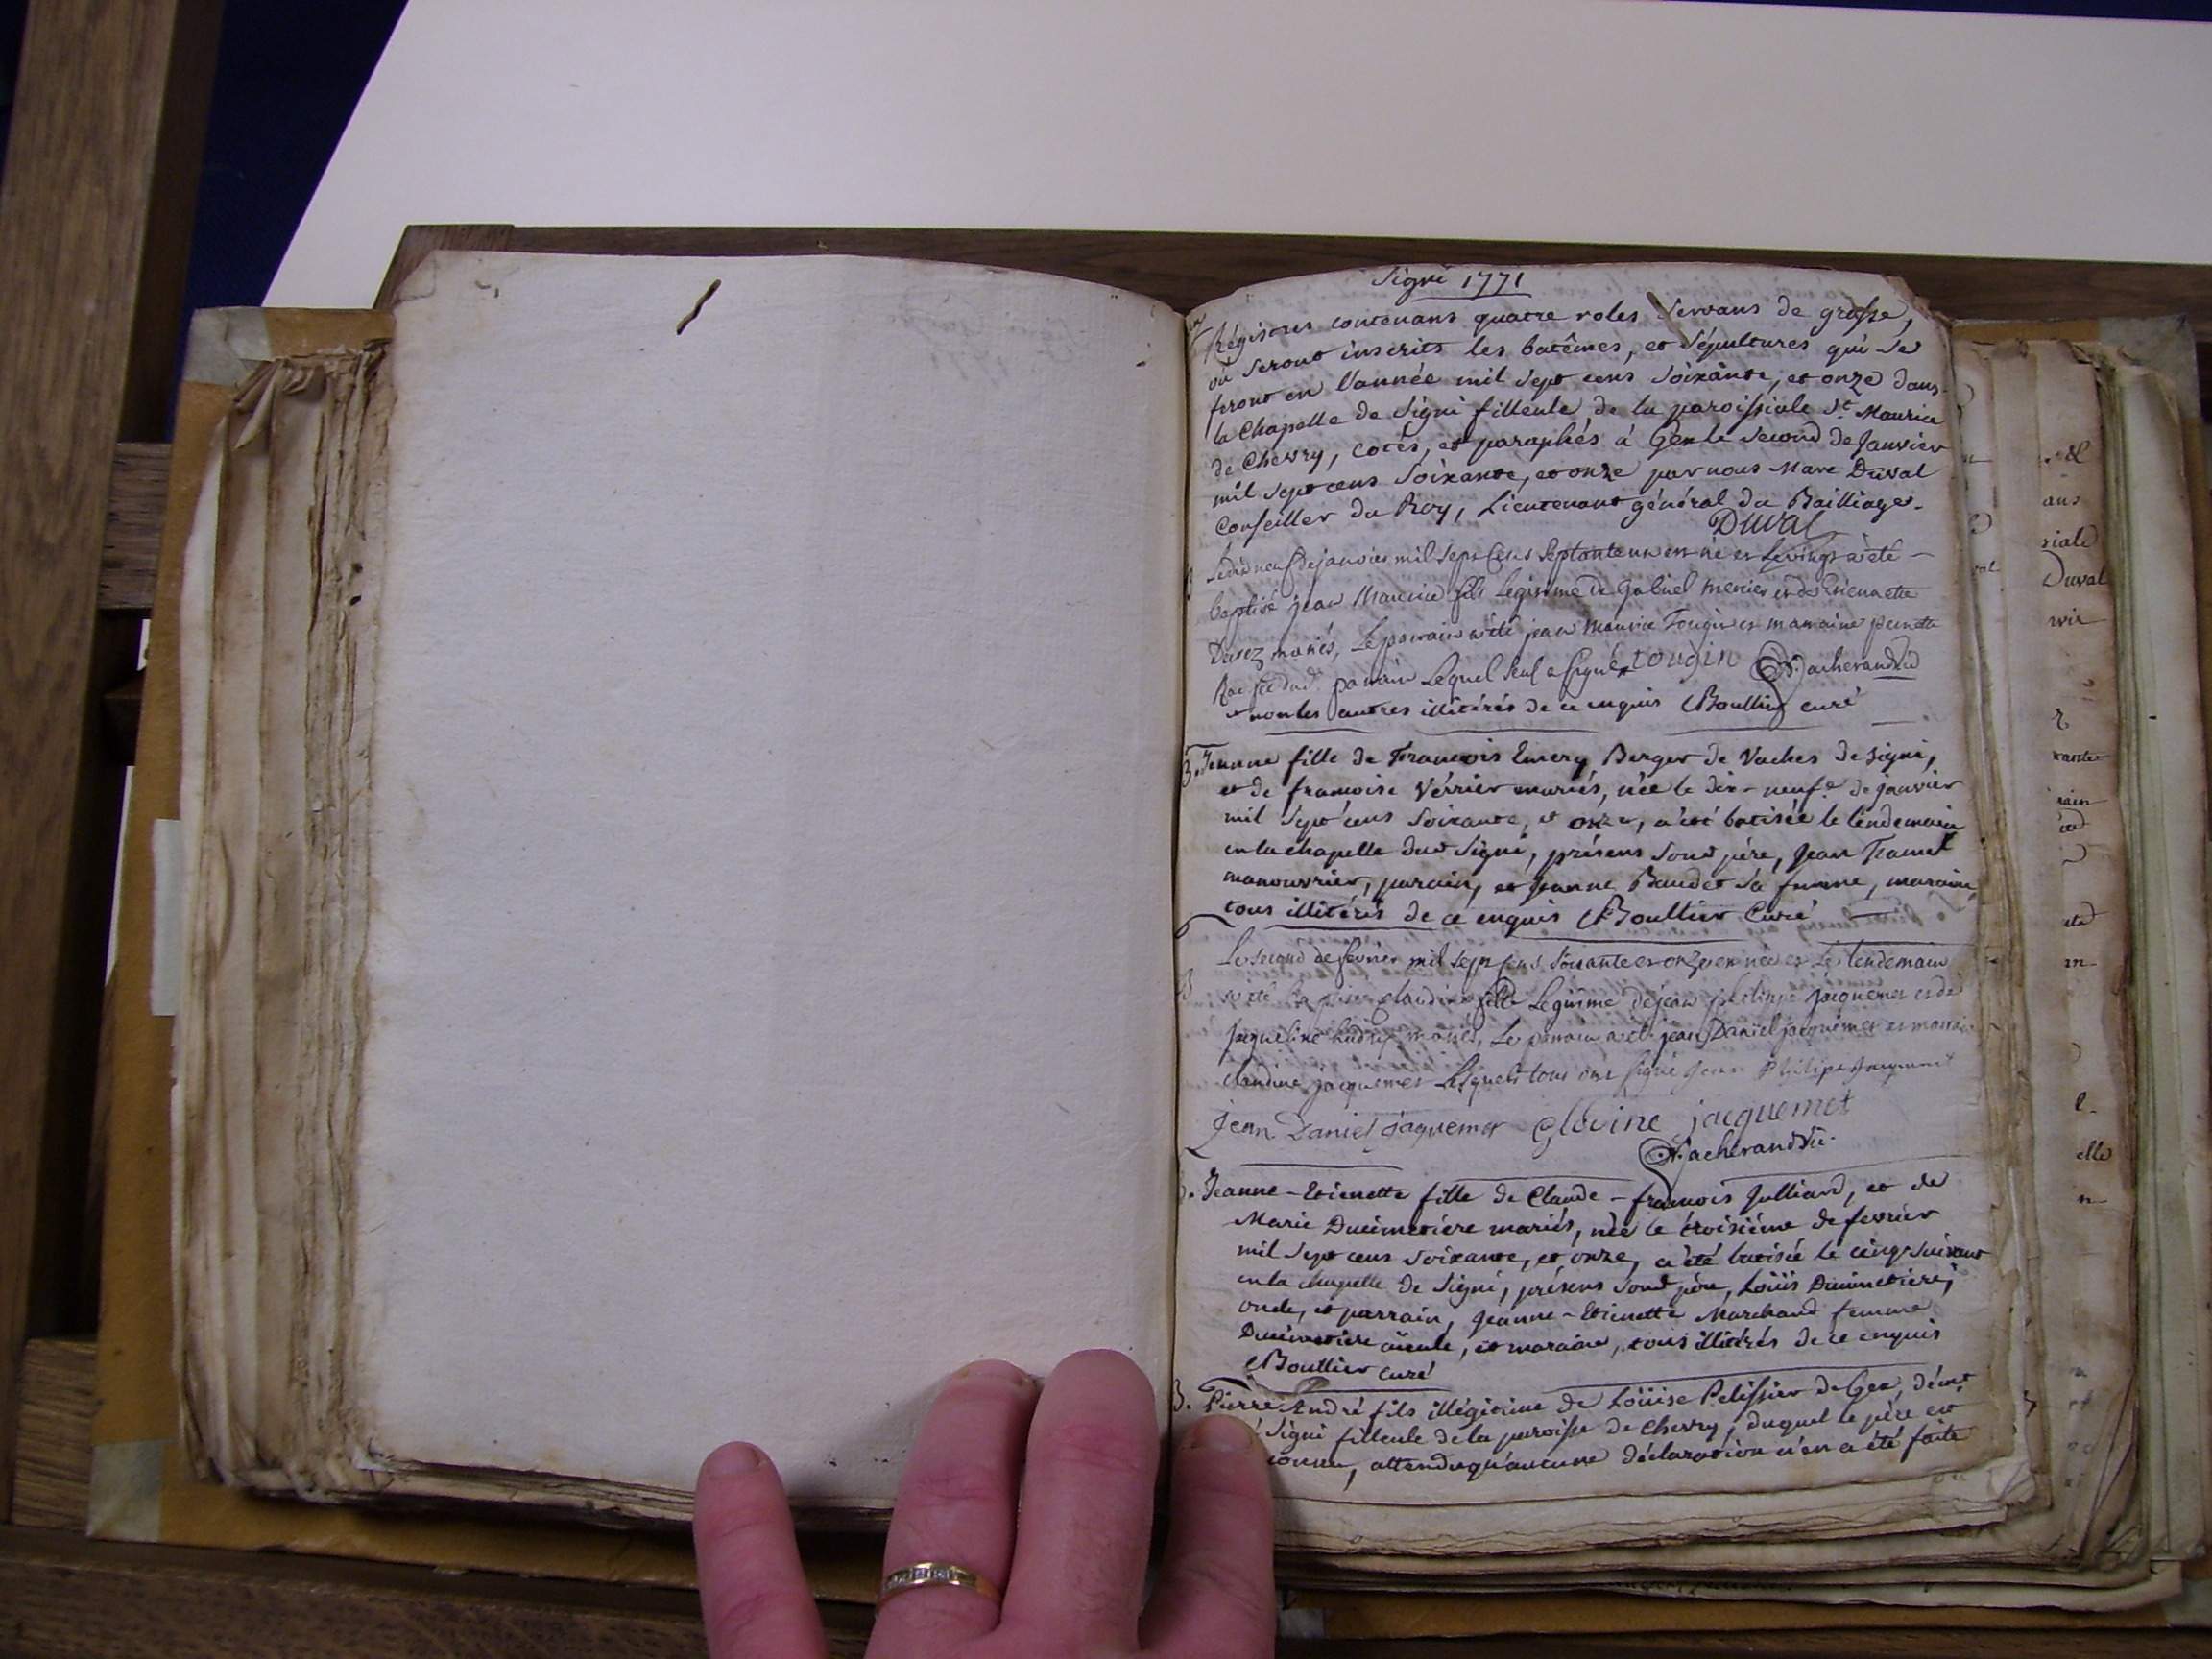 Signi 1771
Régistres contenans quatre roles servans de grosse,
où seront inscrits les batêmes, et sépultures qui se
feront en l'année mil sept cens soixante, et onze dans
la Chapelle de Signi filleule de la paroissiale St. Maurice
de Chevry, cotés, et paraphés à Gex le second de Janvier
mil sept cens soixante, et onze par nous Marc Duval
Conseiller du Roy, Lieutenant général du Bailliage.
Duval
Le dix neuf de janvier mil sept cens septante un est né et le vingt a été
baptisé jean Maurice fils Legitime de Gabriel et de Etienette
mariés, Le parrain a été jean Maurice Fougin et marraine
parrain Lequel seul a signé tougin
et non les autres illitérés de ce enquis Boullier curé
B. Jeanne fille de François Emery Berger de Vaches de Signi,
et de françoise Vérrier mariés, née le dix-neuf.e de janvier
mil sept cens soixante, et onze, a été batisée le lendemain
en la chapelle dud. Signi, présens sond. père, Jean Tramet
manouvrier, parain, et Jeanne Baudet sa femme, maraine,
tous illitérés de ce enquis Boullier Curé
B Le second de fevrier mil sept cens soixante et onze est née et Le lendemain
a été baptisée claudine fille Legitime de jean philippe jacquemet et de
jaqueline mariés, Le parrain a été jean Daniel jacquemet et marraine
claudine jacquemet Lesquels tous ont signé Jean Philipe Jaquemet
Jean Daniel Jaquemet Glodine jacquemet
B. Jeanne-Etienette fille de Claude-françois Julliard, et de
Marie Ducimetière mariés, née le troisiéme de fevrier
mil sept cens soixante, et onze, a été batisée le cinq suivant
en la chapelle de Signi, présens sond. père, Loüis Ducimetière,
oncle, et parrain, Jeanne-Etienette Marchand femme
Ducimetière aïeule, et maraine, tous illitérés de ce enquis
Boullier curé
B. Pierre André fils illégitime de Loüise Pelissier de Gex, démt.
à Signi filleule de la paroisse de Chevry, duquel le père est
attendu qu'aucune déclaration n'en a été faite